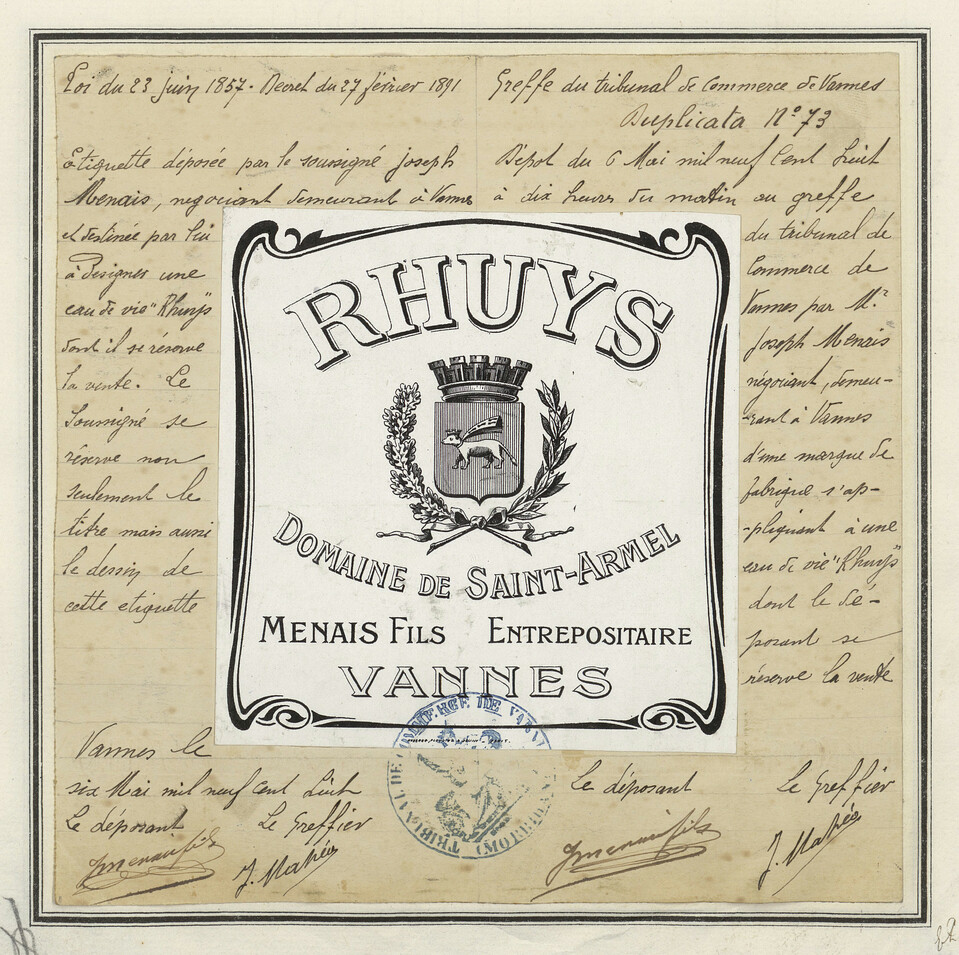 Loi du 23 juin 1857. Decret du 27 février 1891
etiquette déposée par le soussigné joseph
Menais, negociant demeurant à Vannes
et destinée par lui
à designer une
eau de vie "Rhuys"
dont il se réserve
la vente. Le
Soussigné se
réserve non
seulement le
titre mais aussi
le dessin de
cette etiquette
Vannes le
six Mai mil neuf Cent huit
Le déposant Le Greffier
Jmenaisfils J. Mahéo
Greffe du tribunal de Commerce de Vannes
Duplicata N° 73
Dépot du 6 Mai mil neuf Cent huit
à dix heures du matin au greffe
du tribunal de
Commerce de
Vannes par Mr
Joseph Menais
négociant, demeu-
-rant à Vannes
d'une marque de
fabrique s'ap-
-pliquant à une
eau de vie "Rhuys"
dont le dé-
posant se
réserve la vente
Le déposant Le Greffier
Jmenaisfils J. Mahéo
RHUYS
DOMAINE DE SAINT-ARMEL
MENAIS FILS ENTREPOSITAIRE
VANNES
TRIBUNAL DE COMMERCE DE VANNES
(MORBIHAN)